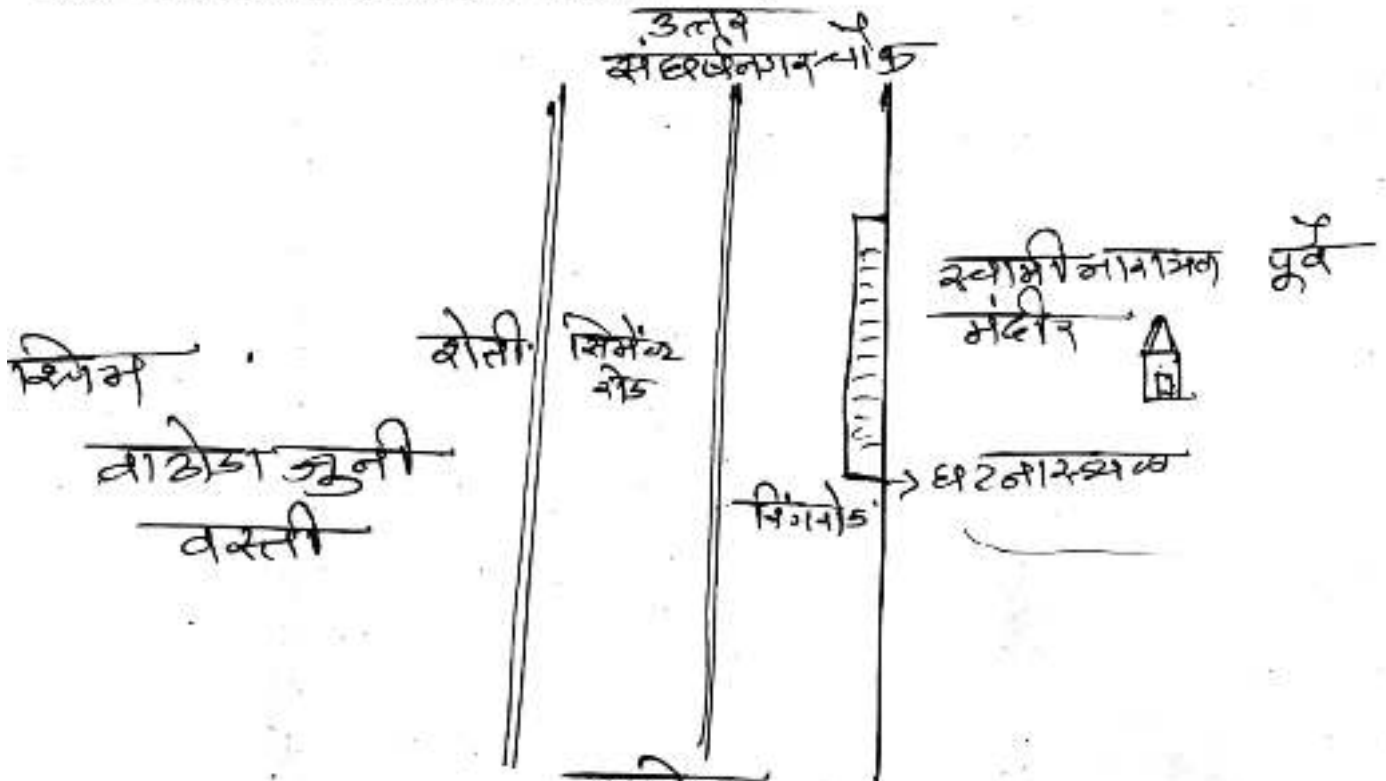 उत्तर
संघर्षनगर चौक
स्वामी नारायण
मंदीर
पूर्व
श्चिम
शेती
सिमेंट
रोड
वाठोडा जुनी
वस्ती
रिंगरोड
घटनास्थळ